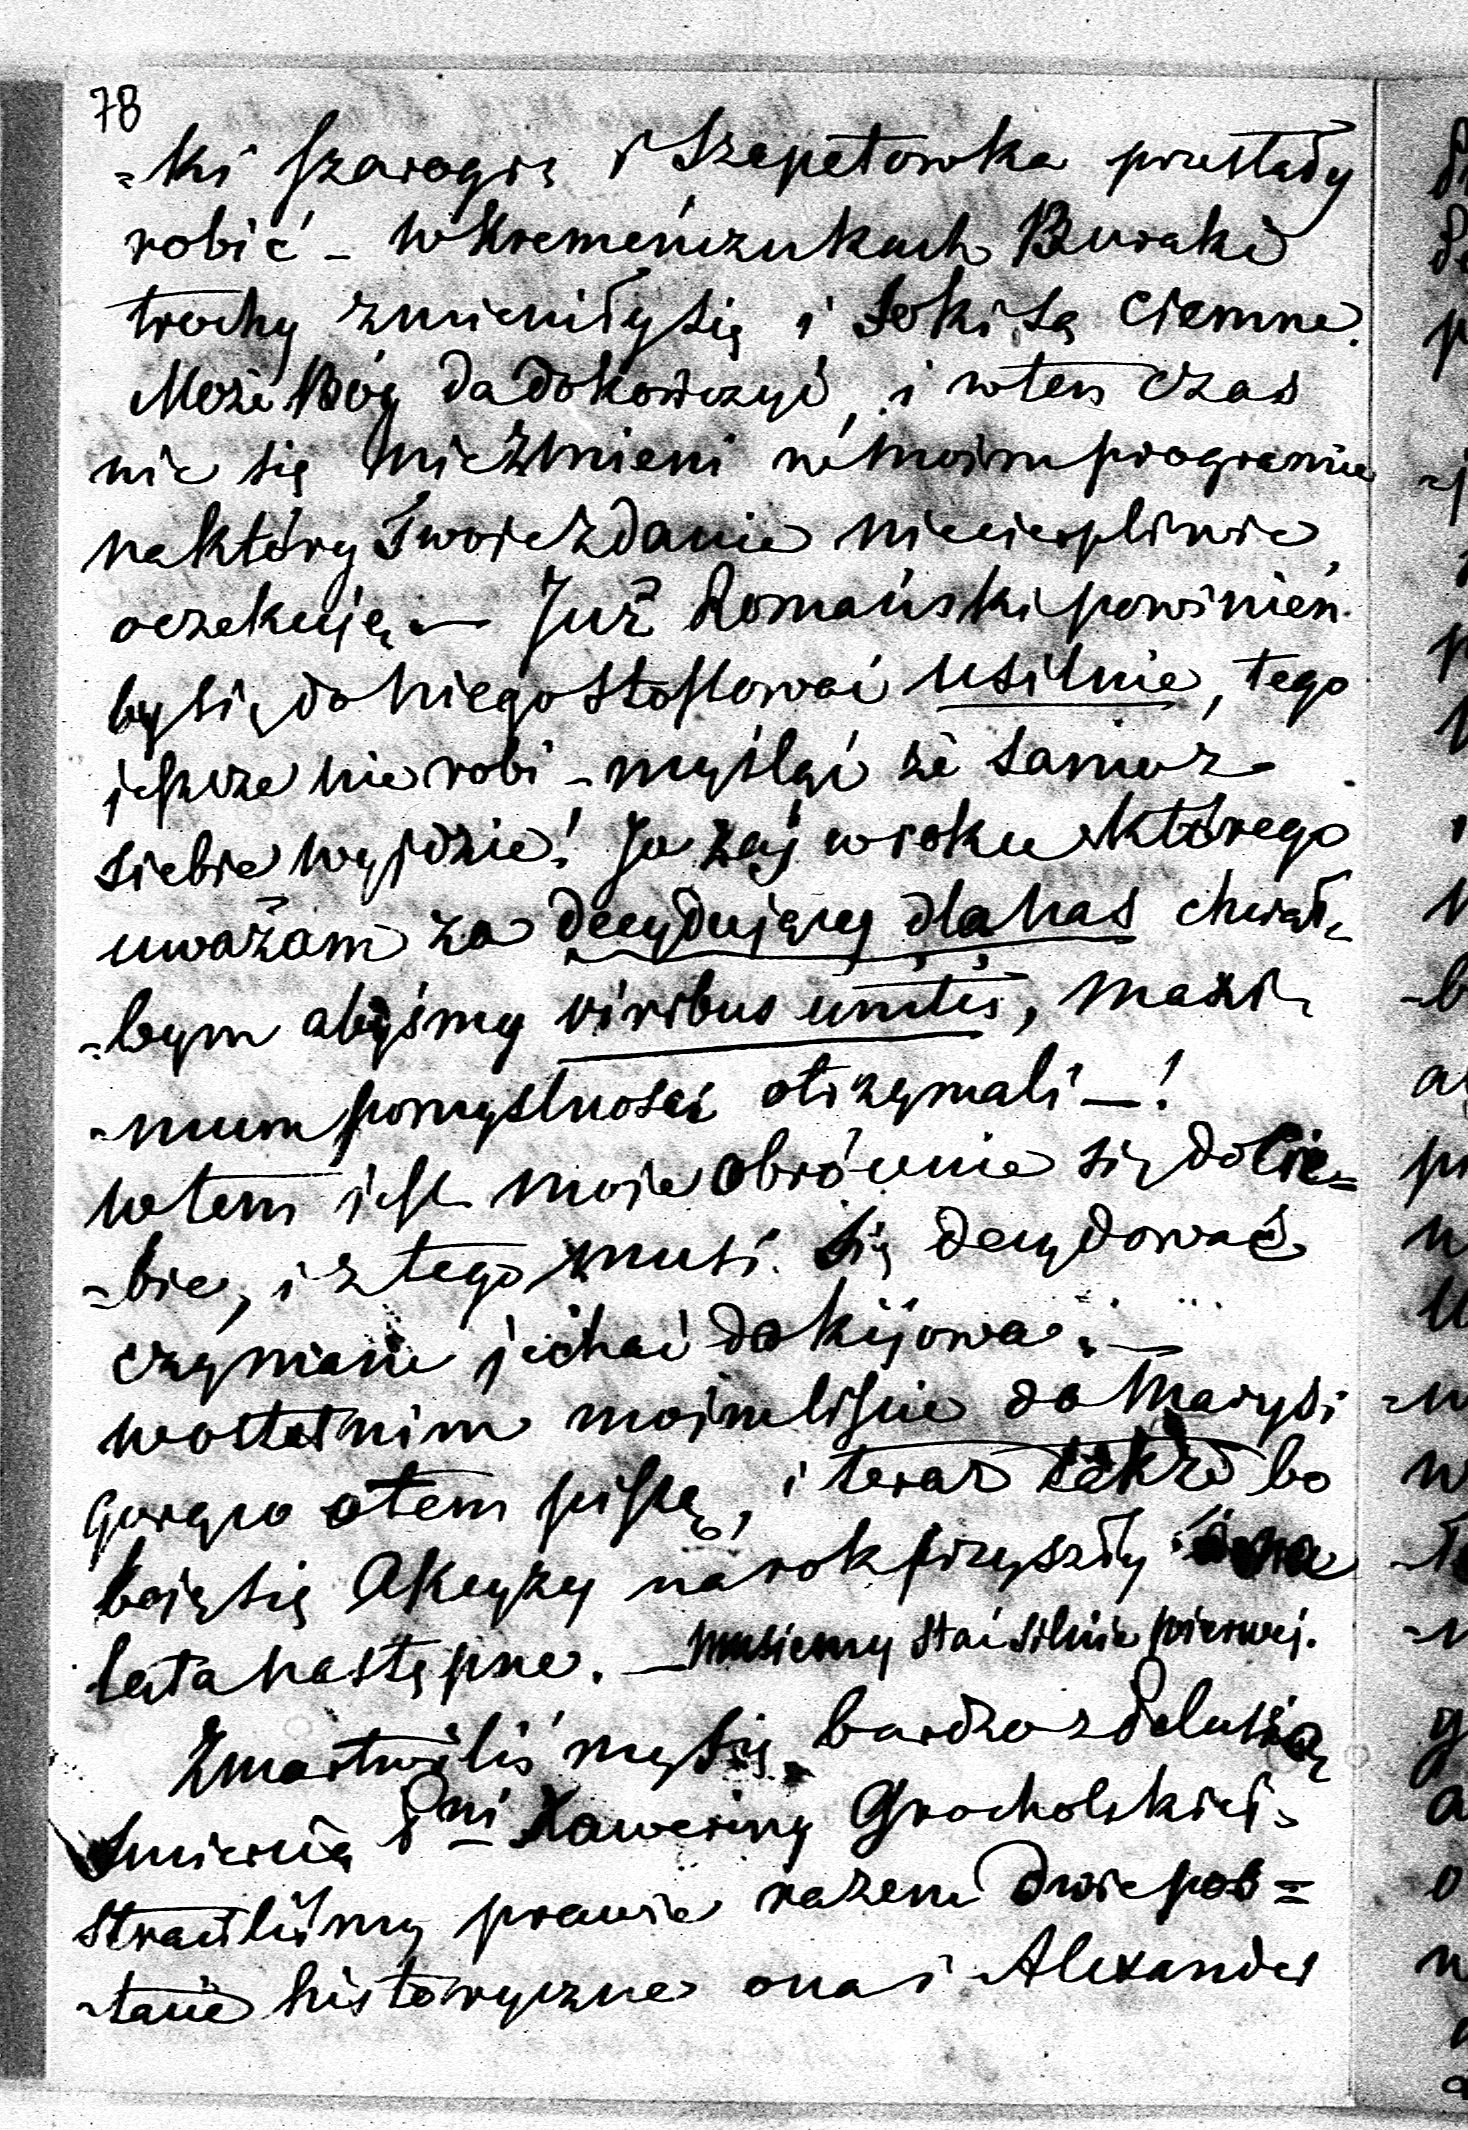 78
-ki Szarogrę i Szepetowka przestały
robić - w Kremeńczukach Buraki
trochy zmieniły się i soki są ciemne.
Może Bóg da dokończyć, i wten czas
nic się nie zmieni w moim programie
na który Twoje zdanie niecierpliwie
oczekuję — Już Romański powinień
by się do niego stossować usilnie, tego
jeszcze nie robi - myśląć że samo z
siebie wyjdzie! Ja zaś w roku którego
uważam za decydujący dla nas chciał-
-bym abyśmy viribus unitis, maxi-
-mum pomyslnosci otrzymali —!
w tem jest moje obrócenie się do Cie=
-bie, i z tego musi się decydować
czy mam jechać do Kijowa. —
w ostatnim moim liście do Marysi
gorąco o tem piszę, i teraz także bo
boję się Akcyzy na rok przyszły
lata następne. — musiemy stać silnie pierwej.
Zmartwiliś my się bardzo z Delusią
smiercią Pni Xaweriny Grocholskiej -
straciliśmy prawie razem dwie pos=
-tacie historyczne ona i Alexander